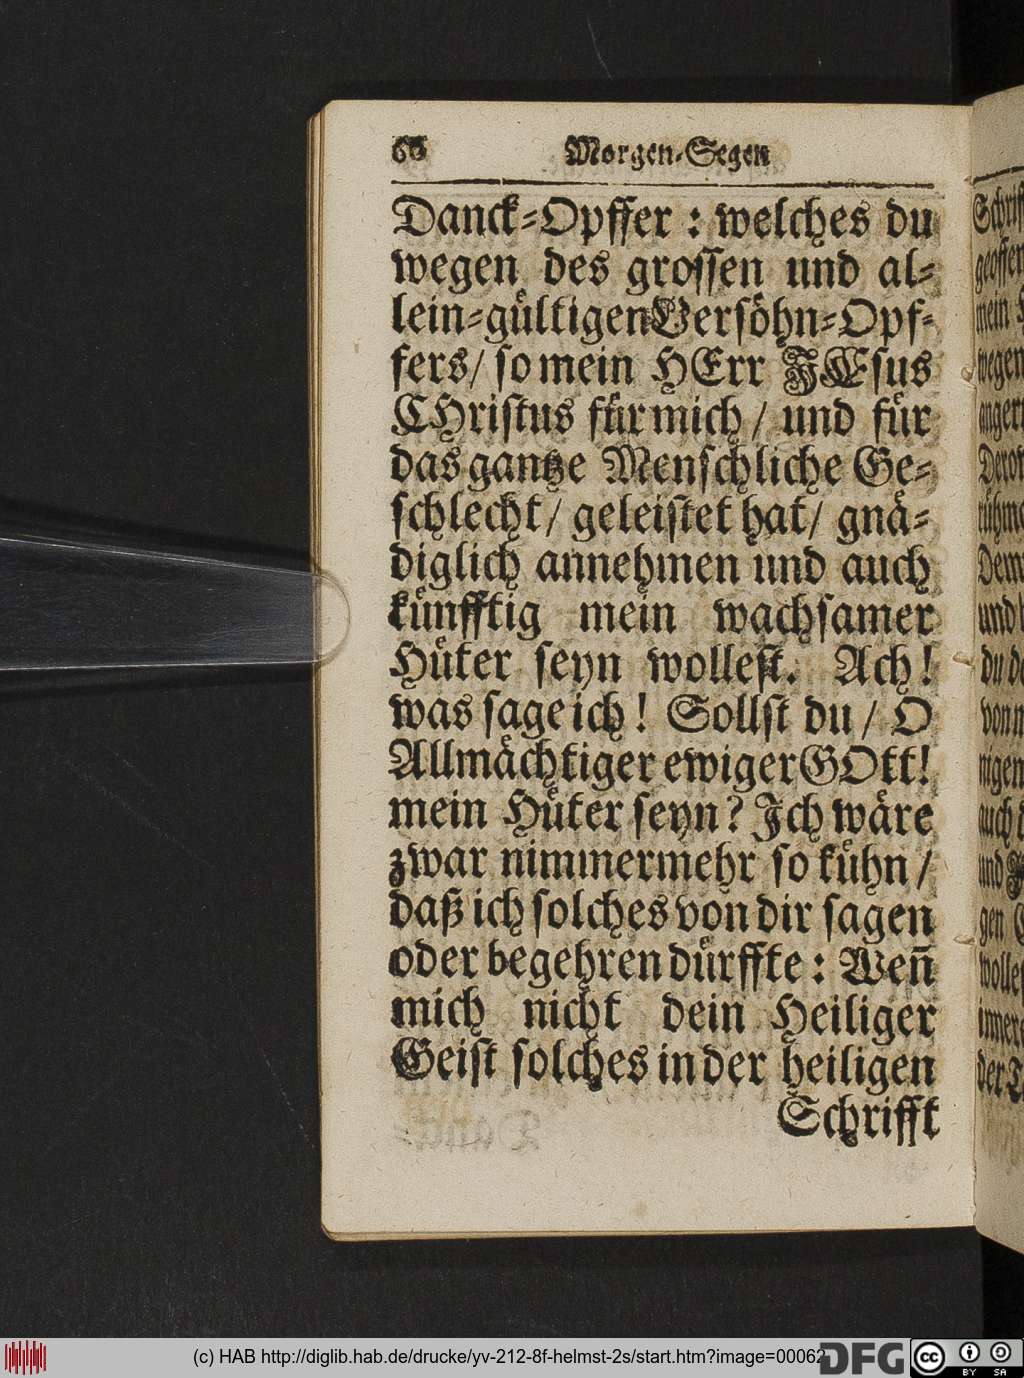 66 Morgen-Segen
Danck-Opffer : welches du
wegen des grossen und al-
lein-gültigen Versöhn-Opf-
fers/ so mein HErr JEsus
CHristus für mich / und für
das gantze Menschliche Ge-
schlecht/ geleistet hat/ gnä-
diglich annehmen und auch
künfftig mein wachsamer
Hüter seyn wollest. Ach!
was sage ich! Sollst du / O
Allmächtiger ewiger GOtt!
mein Hüter seyn? Ich wäre
zwar nimmermehr so kühn /
daß ich solches von dir sagen
oder begehren dürffte : Weñ
mich nicht dein Heiliger
Geist solches in der heiligen
Schrifft
(c) HAB http://diglib.hab.de/drucke/yv-212-8f-helmst-2s/start.htm?image=00062
DFG
cc
BY SA